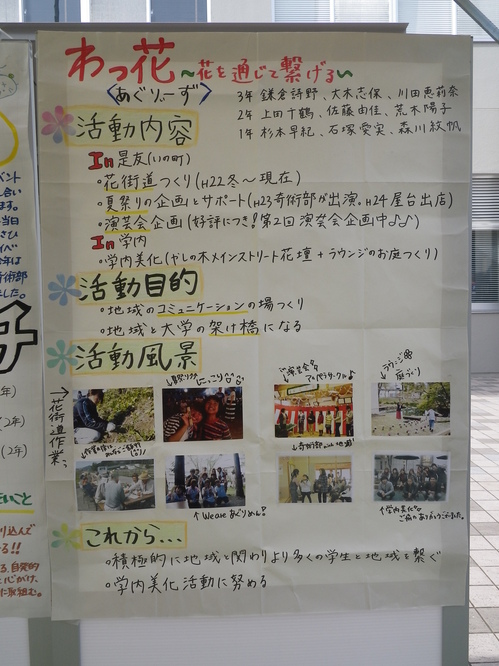 わっ花
~花を通じて繋げる~
<あぐりぃーず>
3年 鎌倉詩野、大木志保、川田恵莉奈
2年 上田千鶴、佐藤由佳、荒木陽子
1年 杉本早紀、石塚愛実、森川紋帆
活動内容
In 是友(いの町)
・花街道つくり(H22冬~現在)
・夏祭りの企画とサポート(H23奇術部が出演。H24屋台出店)
・演芸会企画(好評につき!第2回演芸会企画中♪♪)
In 学内
・学内美化(やしの木メインストリート花壇+ラウンジのお庭づくり)
活動目的
・地域のコミュニケーションの場つくり
・地域と大学の架け橋になる
活動風景
→花街道作業、
にっこり
↓演芸会
↓ラウンジ
庭づくり
↑奇術部
↑We are あぐりめん!
↑学内美化
ご協力ありがとうございました。
これから...
・積極的に地域と関わりより多くの学生と地域を繋ぐ
・学内美化活動に努める
ベント
当日
奇術部
ました。
年)
(2年)
(2年)